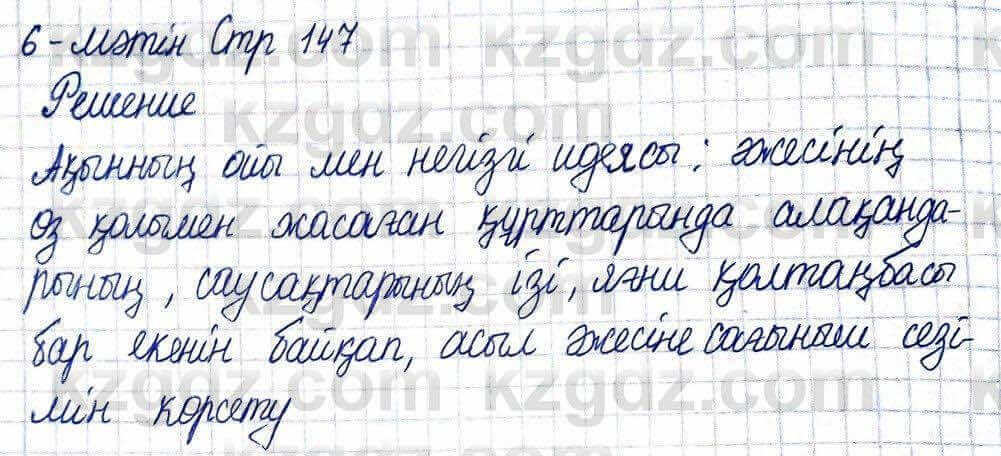 6-мәтін Стр 147
Решение
Ақынның ойы мен негізгі идеясы: әжесінің
өз қолымен жасаған құрттарында алақанда-
рының, саусақтарының ізі, яғни қолтаңбасы
бар екенін байқап, асыл әжесіне сағыныш сезі-
мін көрсету
kzgdz.com